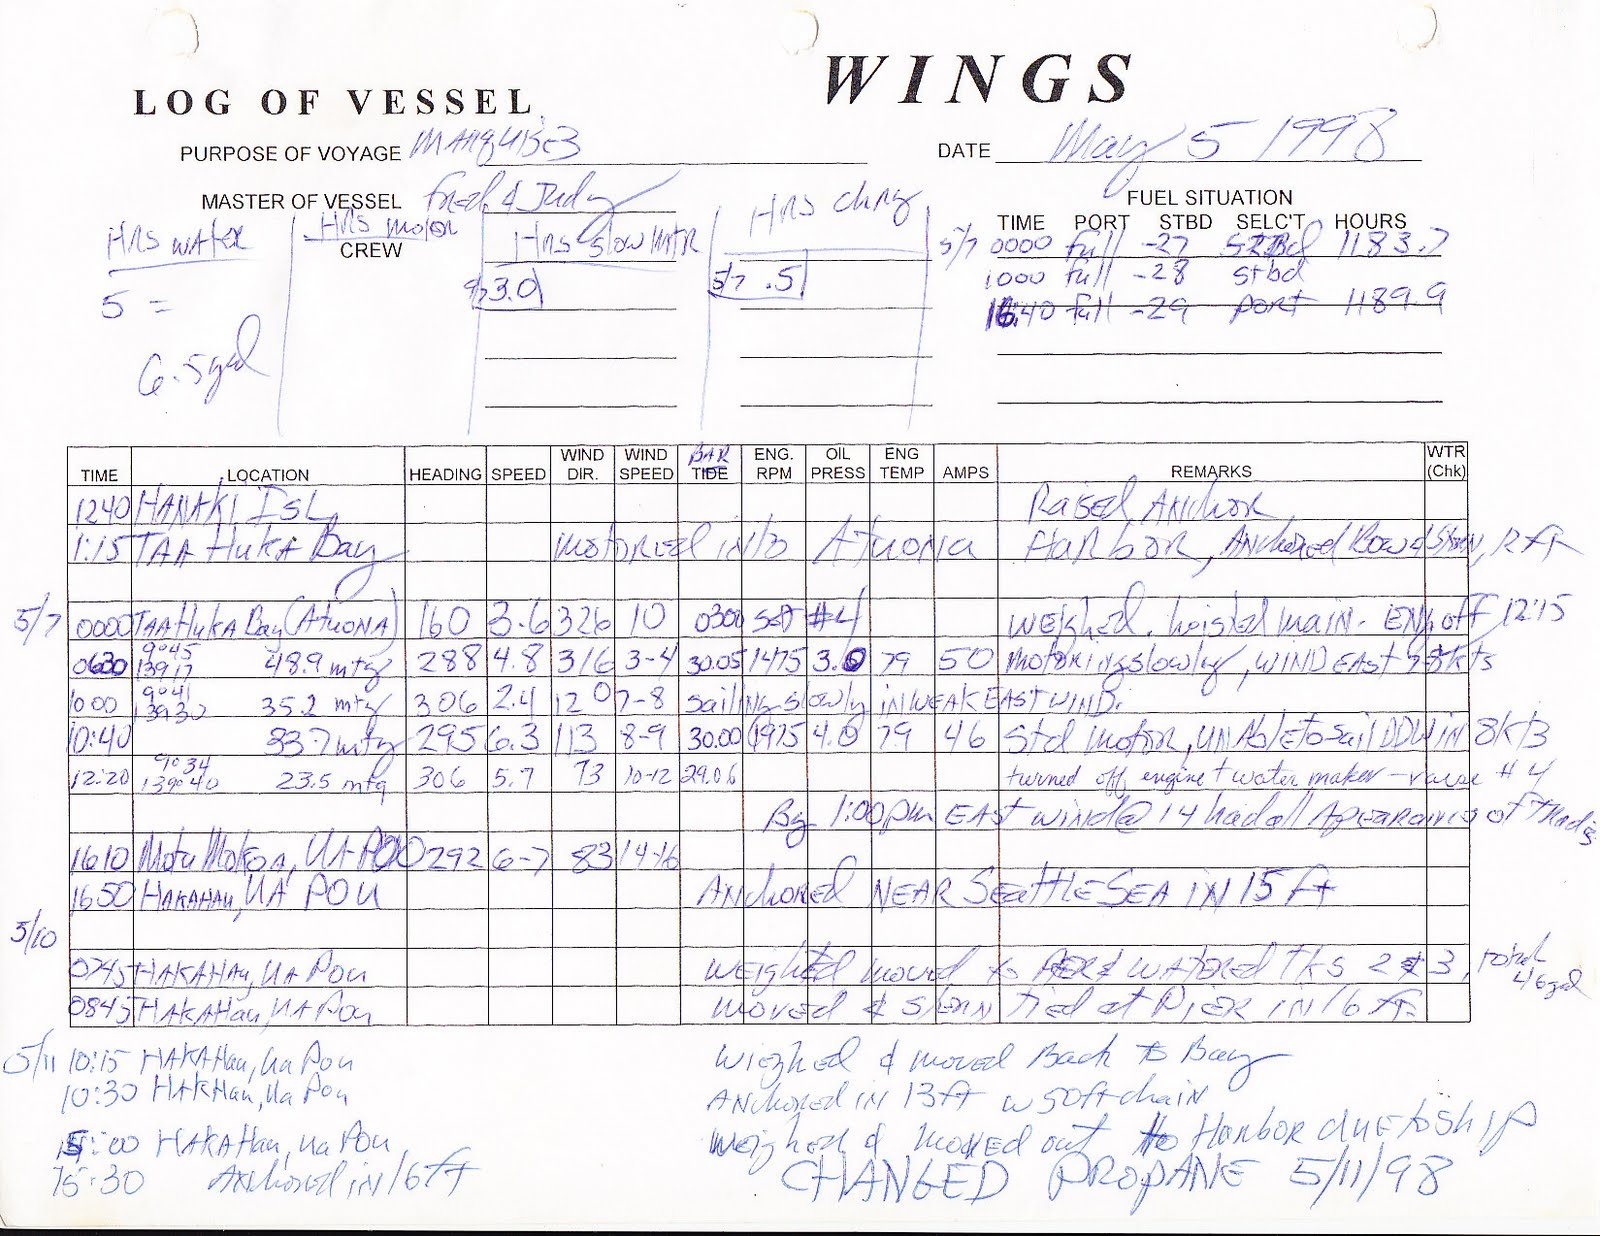 WINGS
LOG OF VESSEL
PURPOSE OF VOYAGE MARQUISES
DATE May 5 1998
MASTER OF VESSEL Fred & Judy
FUEL SITUATION
HRS water HRS motor HRS slow MTR HRS chrg
CREW
TIME PORT STBD SELC'T HOURS
5/7 0000 full -27 STBd 1183.7
1000 full -28 stbd
1640 full -29 port 1189.9
5 = 5/7 3.0 5/7 .5
6.5 gal
TIME LOCATION HEADING SPEED WIND DIR. WIND SPEED BAR TIDE ENG. RPM OIL PRESS ENG TEMP AMPS REMARKS WTR (Chk)
1240 HANAKI ISL, Raised ANCHOR
1:15 TAA HUKA Bay motored into Atuona Harbor, Anchored Bow & Stern,
5/7 0000 TAA HUKA Bay (ATUONA) 160 3.6 326 10 0300 set #4 weighed. hoisted main. ENG off 12:15
0630 9°45 139 17 48.9 mtg 288 4.8 316 3-4 30.05 1475 3.0 79 50 motoring slowly, WIND EAST 7-8 kts
1000 9°41 139 30 35.2 mtg 306 2.4 120 7-8 sailing slowly in WEAK EAST WIND.
10:40 33.7 mtg 295 6.3 113 8-9 30.00 1975 4.0 79 46 Std motor, UNABle to sail DDW in 8 kts
12:20 9°34 139°40 23.5 mtg 306 5.7 73 10-12 29.06 turned off engine + water maker - raise #4
By 1:00pm EAST wind @ 14 had all Apearances of Trades
1610 Motu Mokoa, UA POU 292 6-7 83 14-16
1650 HAKAHAU, UA POU ANCHORED NEAR Seattle SEA IN 15 ft
5/10
0745 HAKAHau, Ua Pou weighed moved to Pier & watered tks 2 & 3, total 46 gal
0845 HAKAHau, UA Pou moved & stern tied at Pier in 16 ft
5/11 10:15 HAKAHau, Ua Pou Weighed & moved Back to Bay
10:30 HAKHau, Ua Pou Anchored in 13 ft w 50 ft chain
15:00 HAKAHau, Ua Pou, Weighed & moved out to Harbor due to ship
15:30 Anchored in 16 ft CHANGED PROPANE 5/11/98